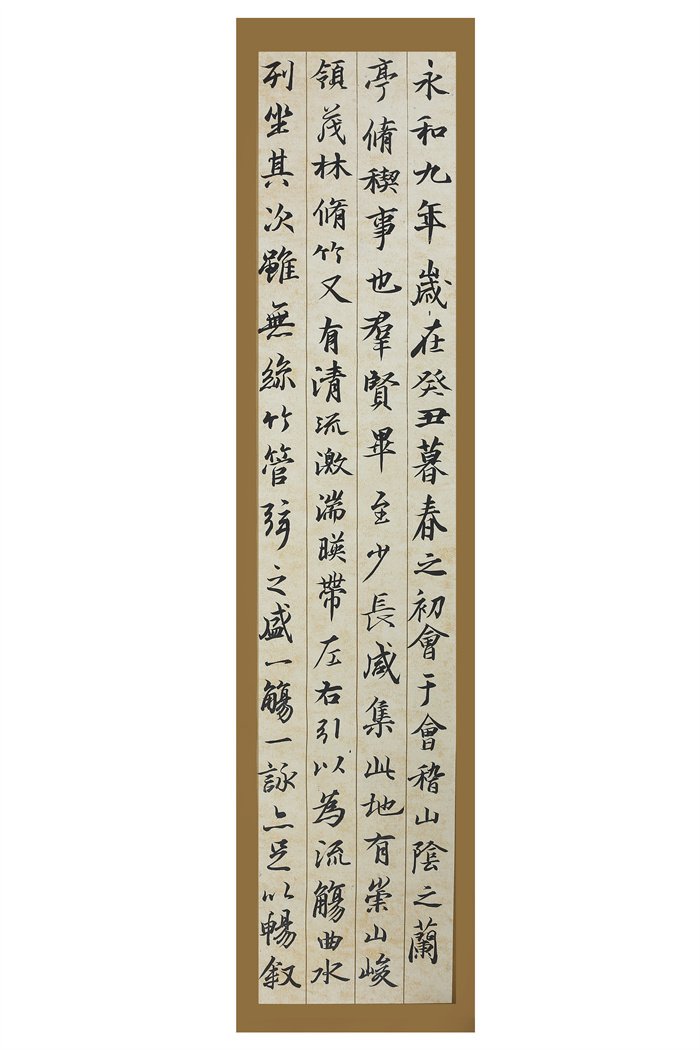 永和九年歲在癸丑暮春之初會于會稽山陰之蘭
亭脩稧事也羣賢畢至少長咸集此地有崇山峻
領茂林脩竹又有清流激湍暎帶左右引以為流觴曲水
列坐其次雖無絲竹管弦之盛一觴一詠亦足以暢叙